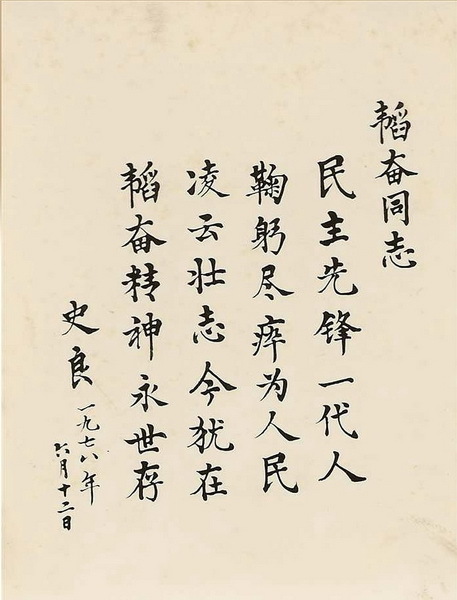 韬奋同志
民主先锋一代人
鞠躬尽瘁为人民
凌云壮志今犹在
韬奋精神永世存
史良
一九七八年
六月十二日